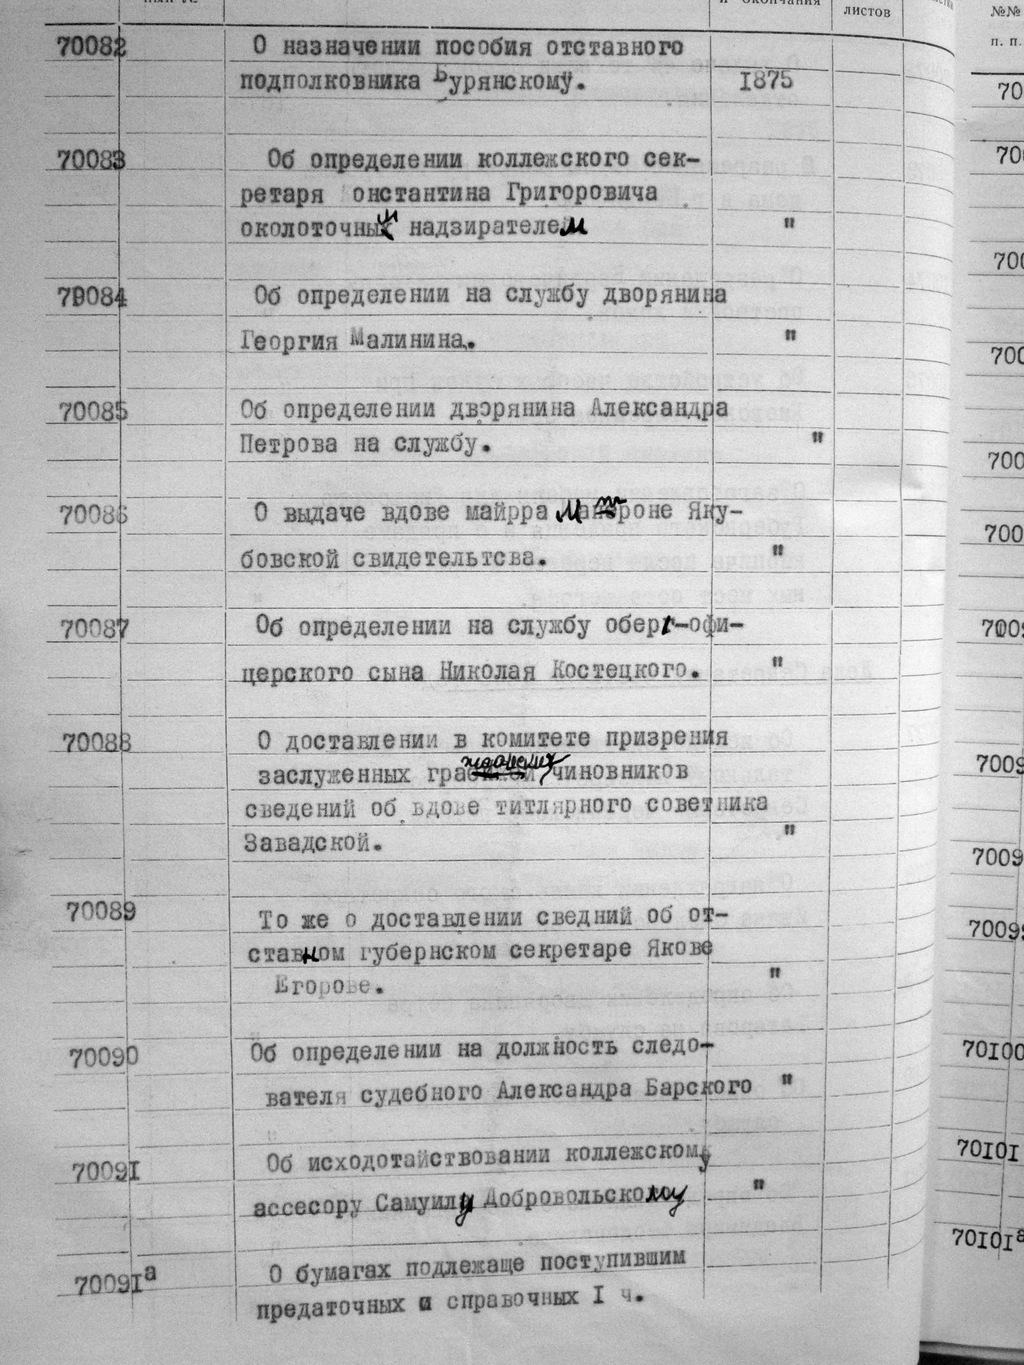 и окончания
листов
№№
п. п.
70082 О назначении пособия отставного
подполковника Бурянскому. 1875
70083 Об определении коллежского сек-
ретаря онстантина Григоровича
околоточным надзирателем "
70084 Об определении на службу дворянина
Георгия Малинина. "
70085 Об определении дворянина Александра
Петрова на службу. "
70086 О выдаче вдове майрра Яку-
бовской свидетельтсва. "
70087 Об определении на службу обер-офи-
церского сына Николая Костецкого. "
70088 О доставлении в комитете призрения
заслуженных гражданских чиновников
сведений об вдове титлярного советника
Завадской. "
70089 То же о доставлении сведний об от-
ставном губернском секретаре Якове
Егорове. "
70090 Об определении на должность следо-
вателя судебного Александра Барского "
70091 Об исходотайствовании коллежскому
ассесору Самуилу Добровольскому "
70091а О бумагах подлежаще поступившим
предаточных и справочных I ч.
70100
70101
70101а